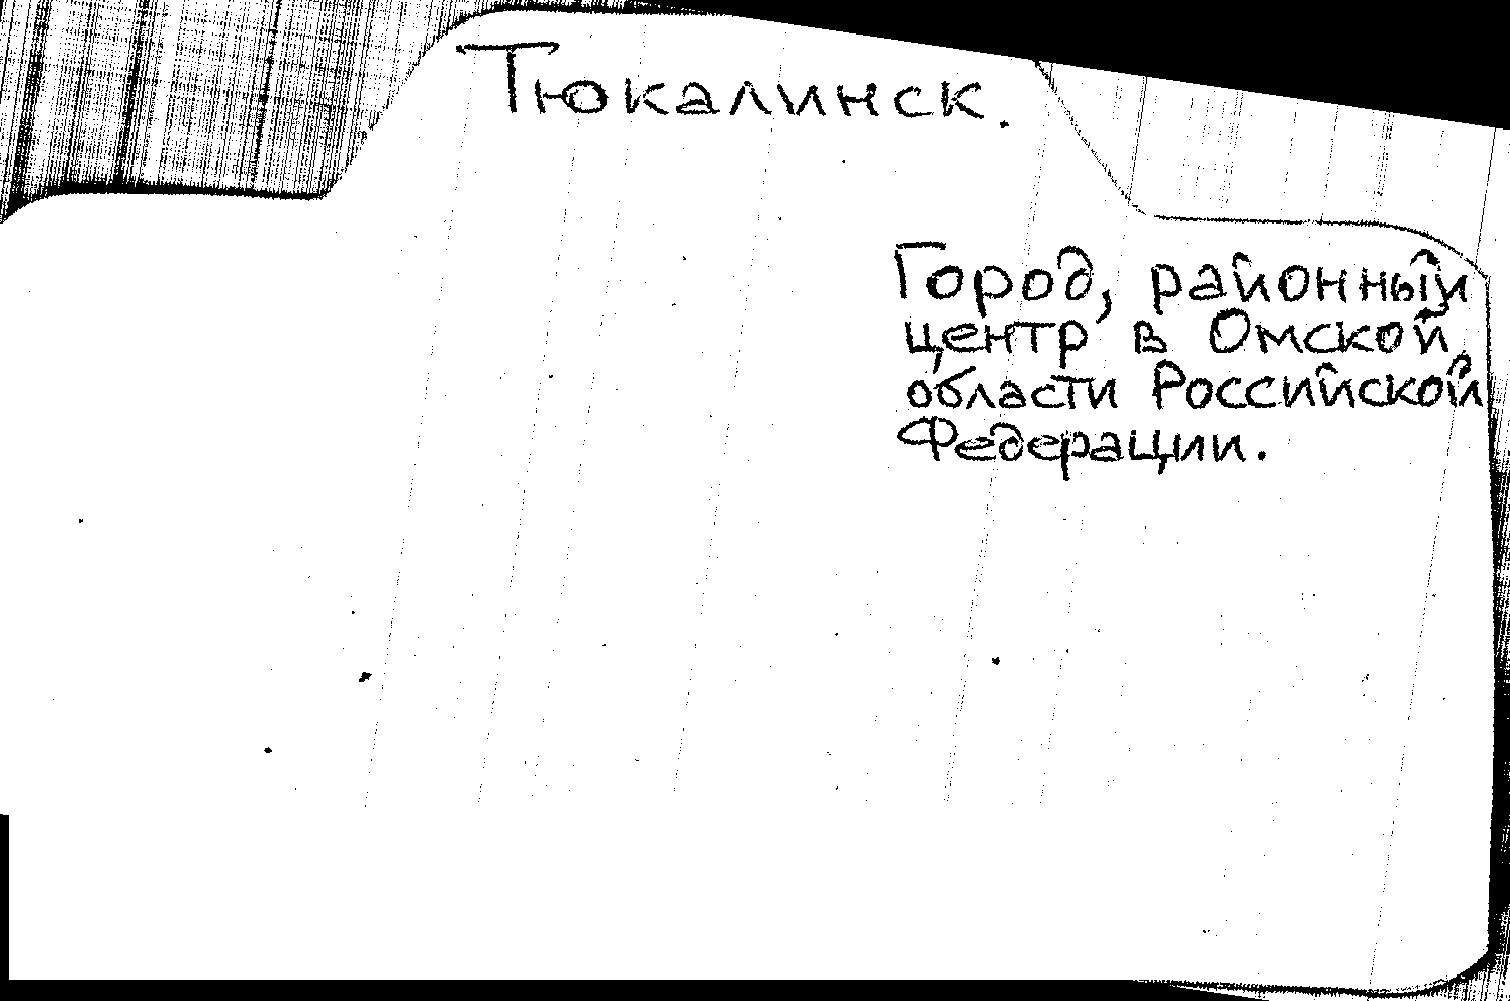 Тюкалинск.
Город, районный
центр в Омской
области Российской
Федерации.